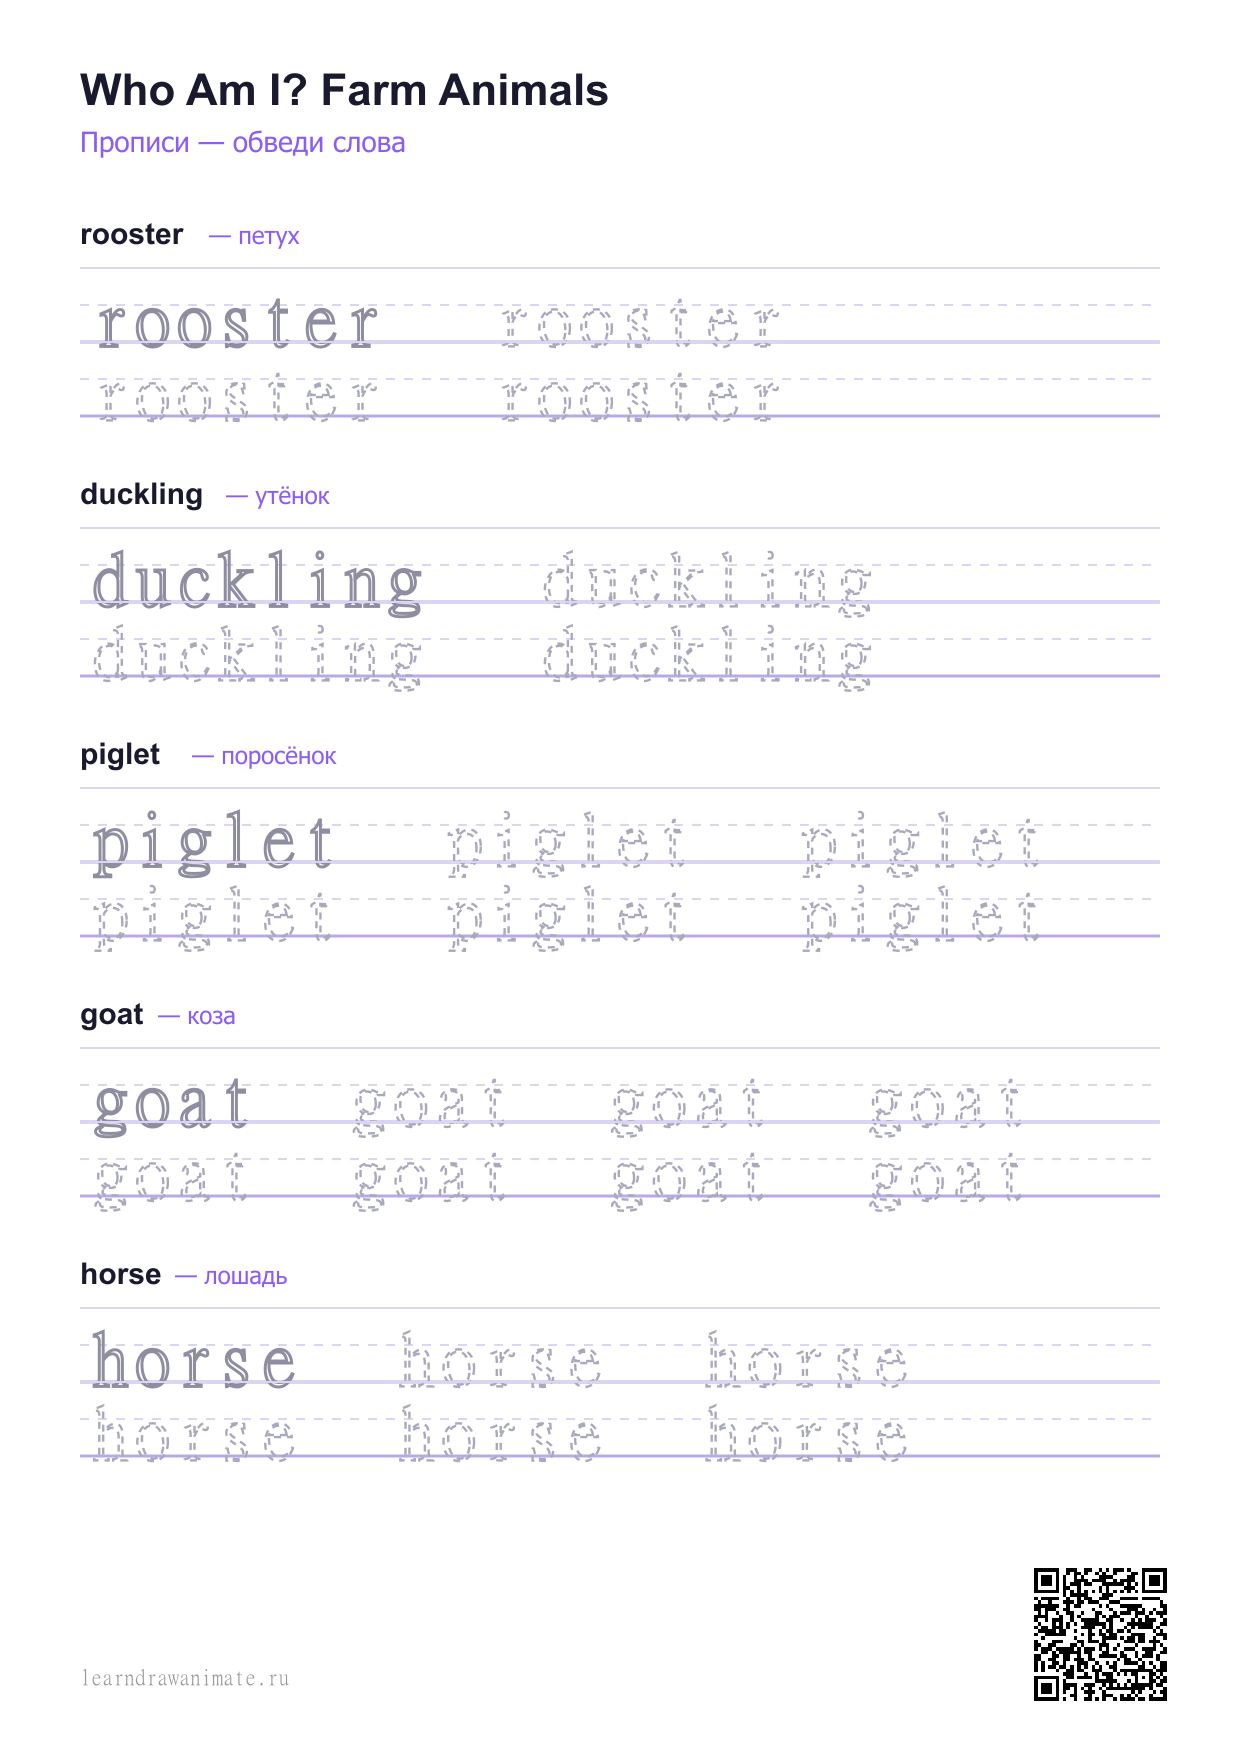 Who Am I? Farm Animals
Прописи — обведи слова
rooster — петух
rooster rooster
rooster rooster
duckling — утёнок
duckling duckling
duckling duckling
piglet — поросёнок
piglet piglet piglet
piglet piglet piglet
goat — коза
goat goat goat goat
goat goat goat goat
horse — лошадь
horse horse horse
horse horse horse
learndrawanimate.ru